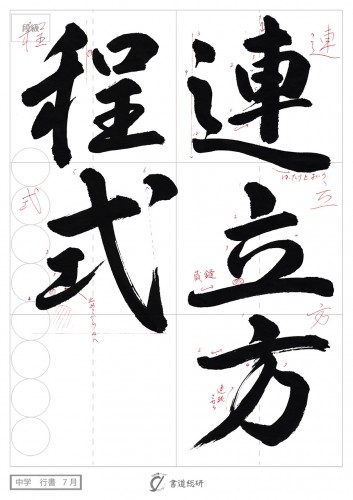 連立方
程式
段級
程
式
連
立
方
中学 行書 7月
書道総研